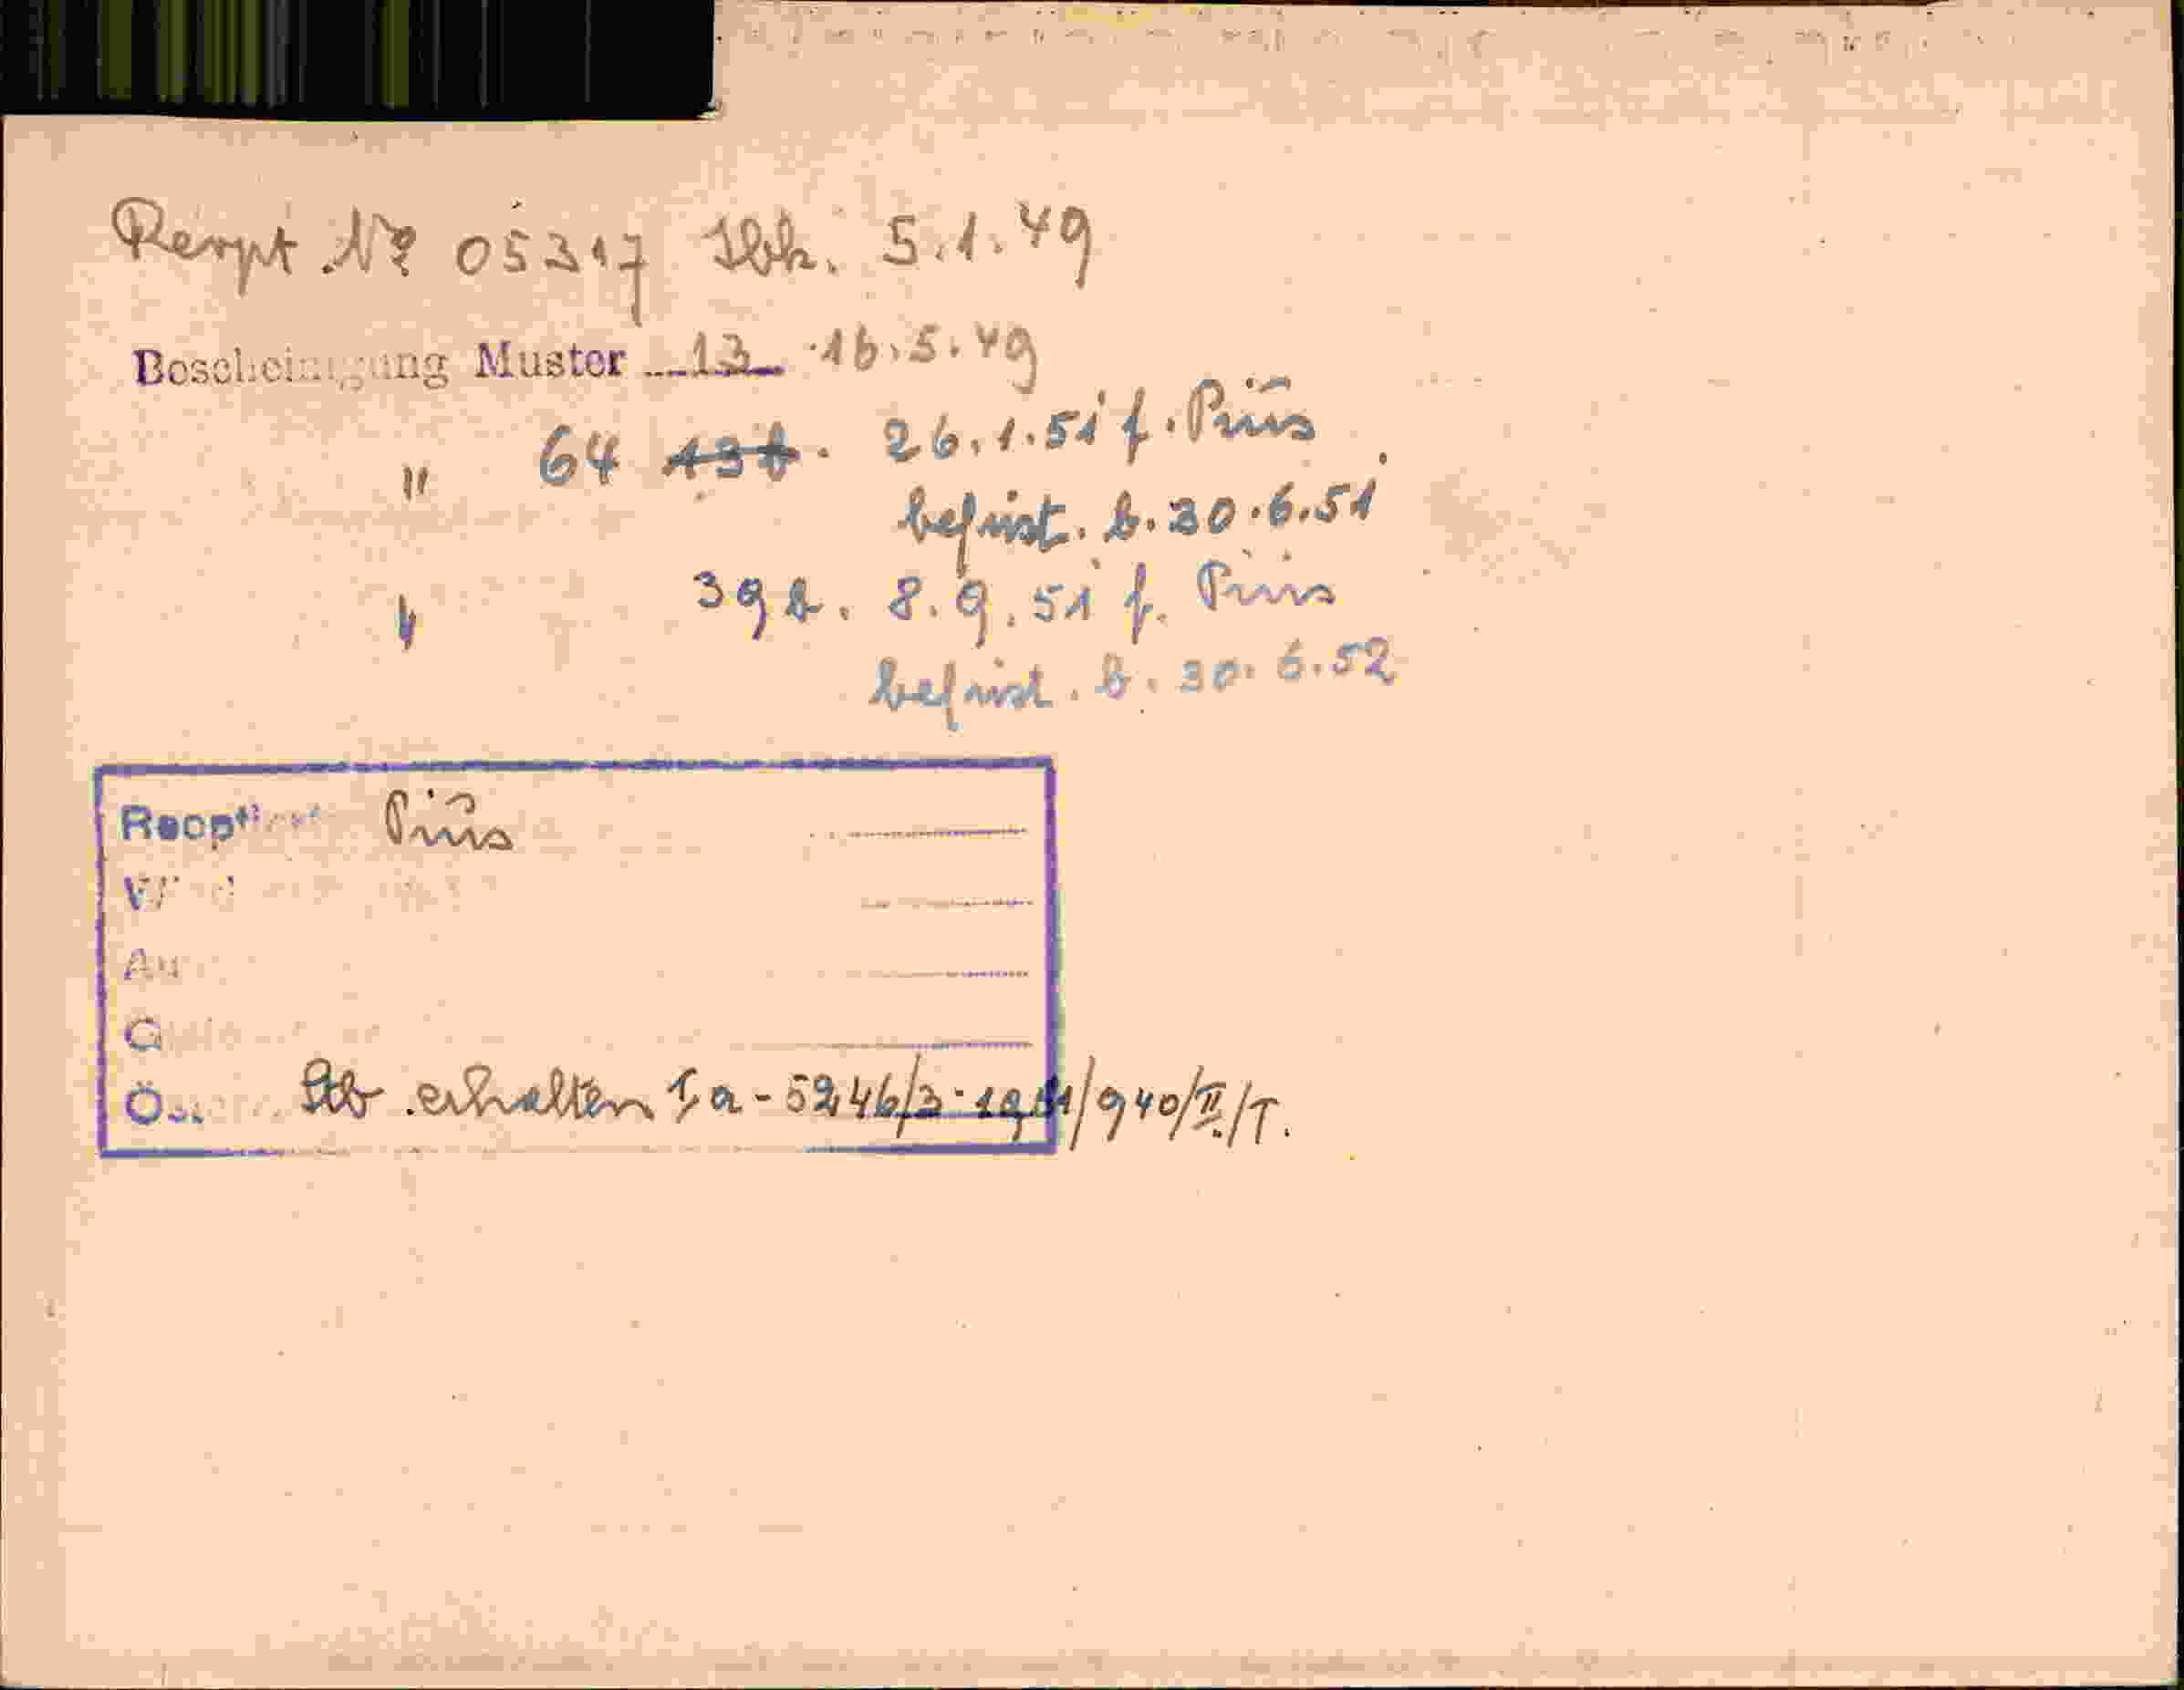 Rezept № 05317 Ibk. 5.1.49
Bescheinigung Muster 13 16.5.49
" 64 13b. 26.1.51 f. Prüs
befrist. b. 30.6.51
" 39b. 8.9.51 f. Prüs
befrist. b. 30.6.52
Prüs
Stb erhalten Ia-5246/3-1951/940/II/T.